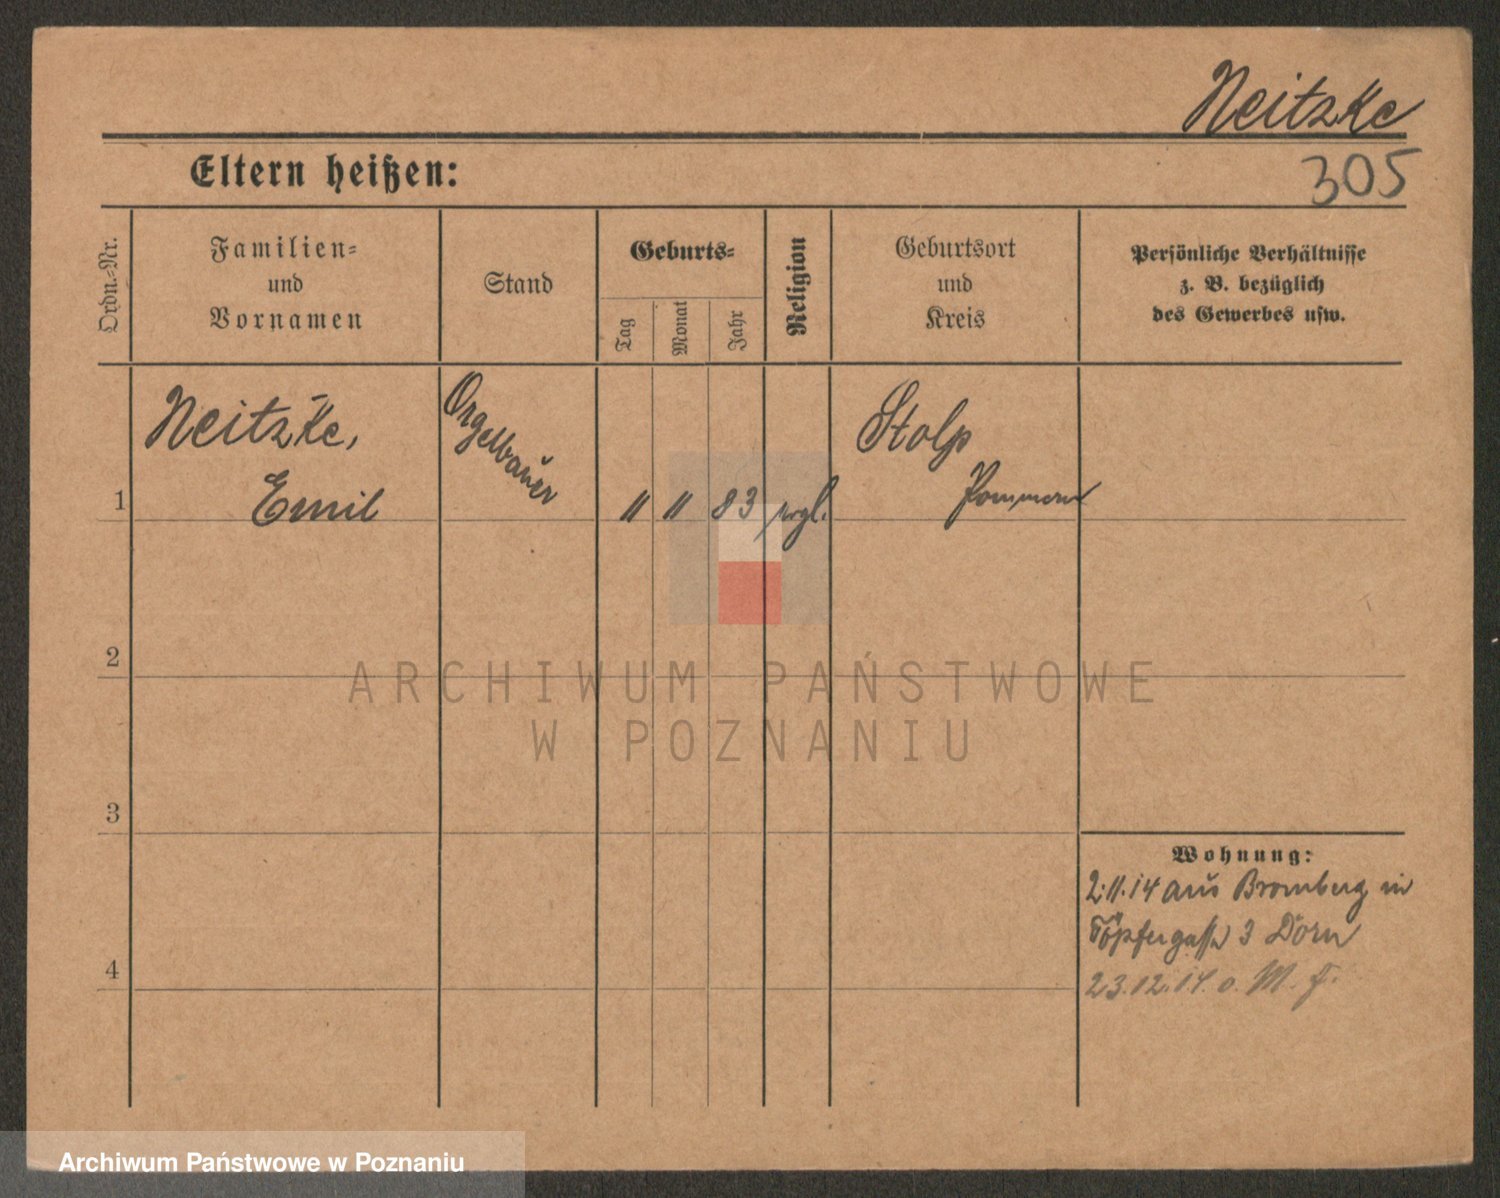 Neitzke
305
Eltern heißen:
Ordn.-Nr.
Familien-
und
Vornamen
Stand
Geburts-
Tag
Monat
Jahr
Religion
Geburtsort
und
Kreis
Persönliche Verhältnisse
z. B. bezüglich
des Gewerbes usw.
1
Neitzke,
Emil
Orgelbauer
" " 83
Stolp
Pommern
2
ARCHIWUM PAŃSTWOWE
W POZNANIU
3
4
Wohnung:
2.11.14 aus Bromberg in
Töpfergasse 3 Dorn
23.12.14. o. M. F.
Archiwum Państwowe w Poznaniu